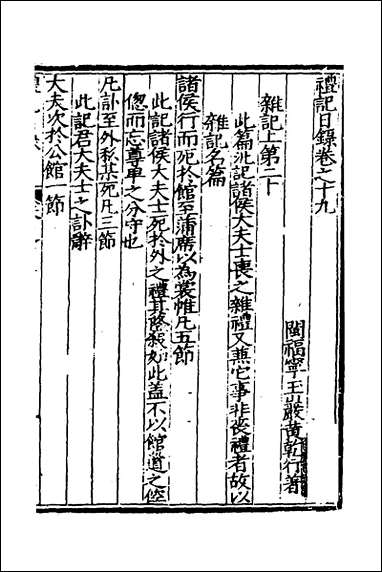 禮記日錄卷之十九
閩福寧玉巖黃乾行著
雜記上第二十
此篇泛記諸侯大夫士喪之雜禮又兼它事非喪禮者故以
雜記名篇
諸侯行而死於館至蒲席以為裳帷凡五節
此記諸侯大夫士死於外之禮其降殺如此盖不以館道之
偬而忘尊卑之分守也
凡訃至外私某死凡三節
此記君大夫士之訃辭
大夫次於公館一節